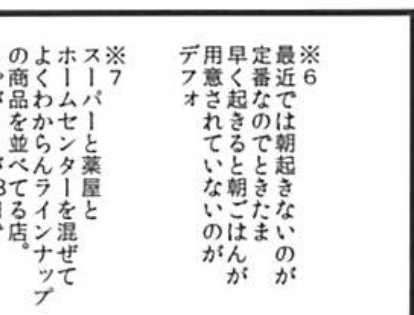 ※6
最近では朝起きないのが
定番なのでときたま
早く起きると朝ごはんが
用意されていないのが
デフォ
※7
スーパーと薬屋と
ホームセンターを混ぜて
よくわからんラインナップ
の商品を並べてる店。